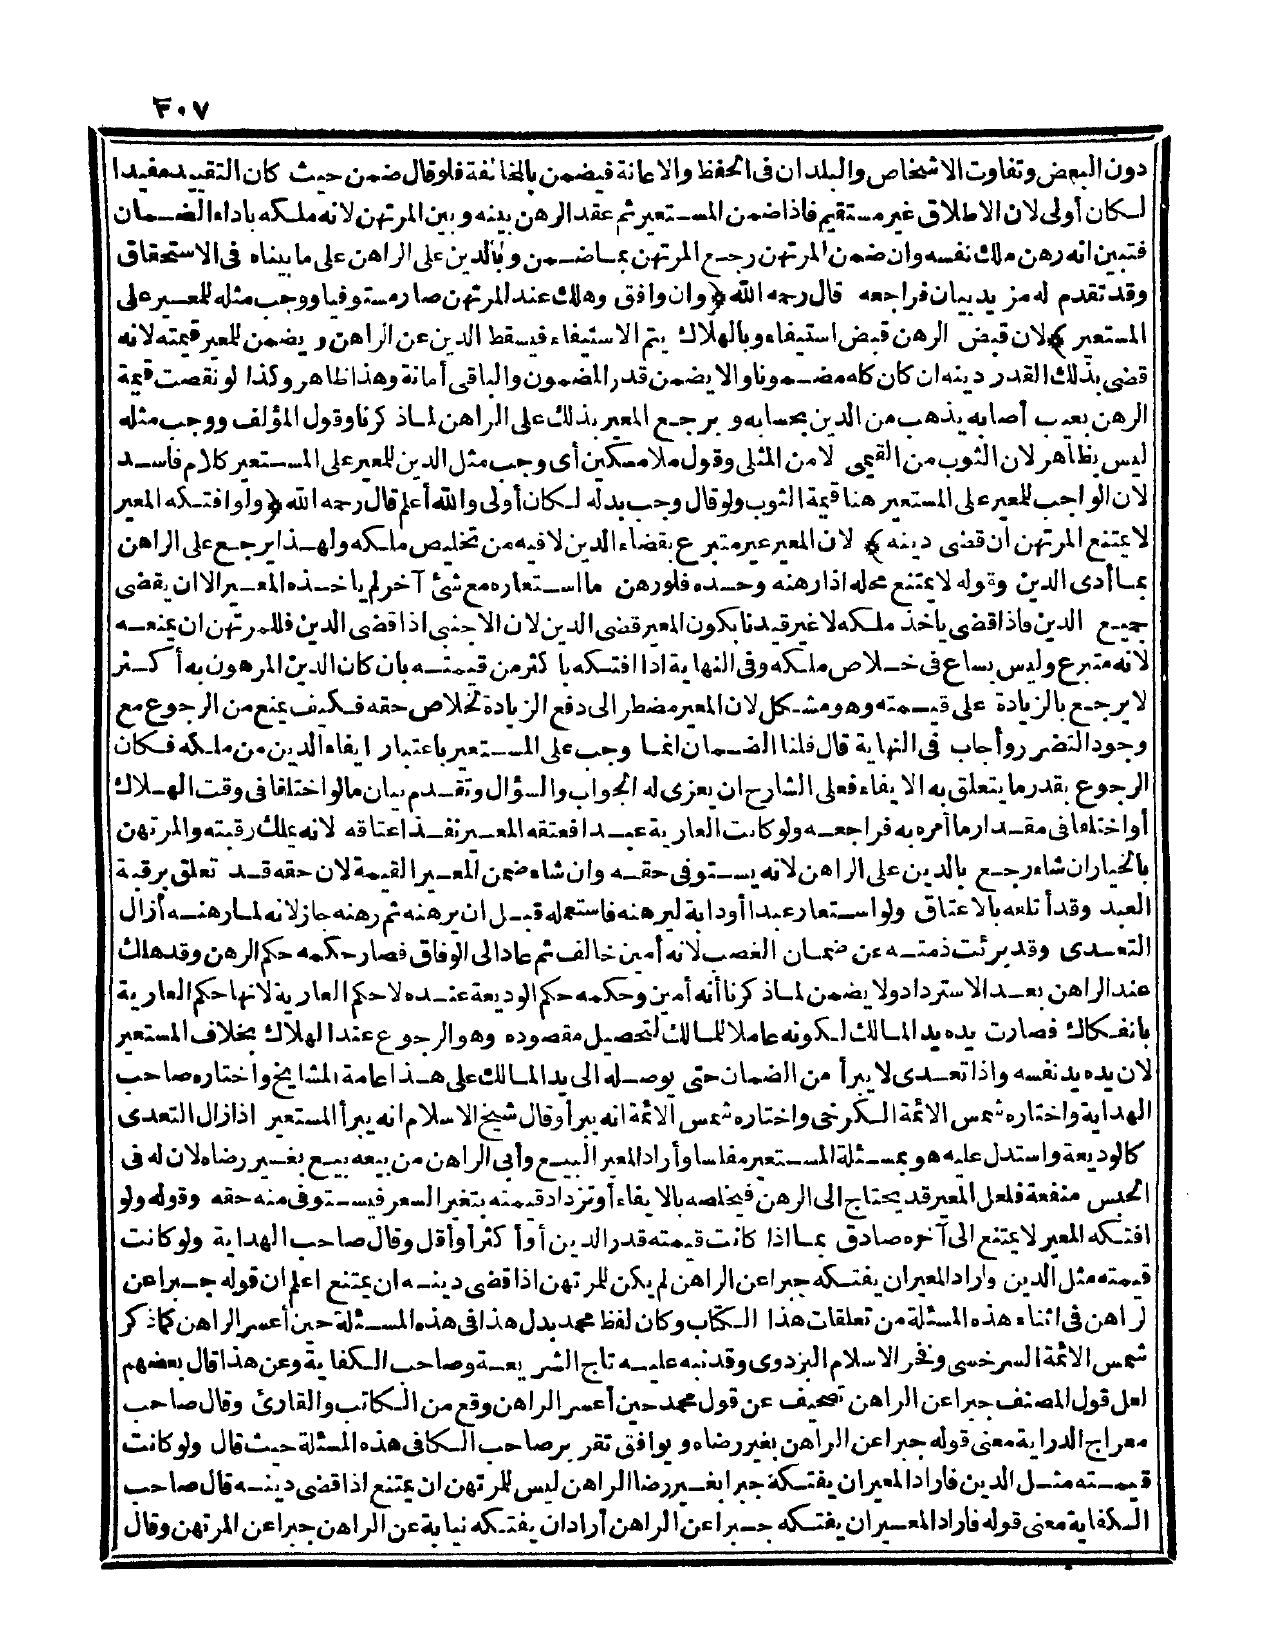 ٣٠٧
دون البعض وتفاوت الاشخاص والبلدان فى الحفظ والاعانة فيضمن بالمخالفة فلو قال ضمن حيث كان التقييد مفيدا
لكان أولى لان الاطلاق غير مستقيم فاذا ضمن المستعير ثم عقد الرهن بينه وبين المرتهن لانه ملكه باداء الضمان
فتبين انه رهن ملك نفسه وان ضمن المرتهن رجع المرتهن بما ضمن وبالدين على الراهن على ما بيناه فى الاستحقاق
وقد تقدم له مزيد بيان فراجعه قال رحمه الله ﴿وان وافق وهلك عند المرتهن صار مستوفيا ووجب مثله للمعير على
المستعير﴾ لان قبض الرهن قبض استيفاء وبالهلاك يتم الاستيفاء فيسقط الدين عن الراهن ويضمن للمعير قيمته لانه
قضى بذلك القدر دينه ان كان كله مضمونا والا يضمن قدر المضمون والباقى أمانة وهذا ظاهر وكذا لو نقصت قيمة
الرهن بعيب أصابه يذهب من الدين بحسابه ويرجع المعير بذلك على الراهن لما ذكرنا وقول المؤلف ووجب مثله
ليس بظاهر لان الثوب من القيمى لا من المثلى وقول ملا مسكين أى وجب مثل الدين للمعير على المستعير كلام فاسد
لان الواجب للمعير على المستعير هنا قيمة الثوب ولو قال وجب بدله لكان أولى والله أعلم قال رحمه الله ﴿ولو افتكه المعير
لا يمتنع المرتهن ان قضى دينه﴾ لان المعير غير متبرع بقضاء الدين لا فيه من تخليص ملكه ولهذا يرجع على الراهن
بما أدى الدين وقوله لا يمتنع محله اذا رهنه وحده فلو رهن ما استعاره مع شئ آخر لم ياخذه المعير الا ان يقضى
جميع الدين فاذا قضى ياخذ ملكه لا غير قيدنا بكون المعير قضى الدين لان الاجنبى اذا قضى الدين فللمرتهن ان يمنعه
لانه متبرع وليس بساع فى خلاص ملكه وفى النهاية اذا افتكه باكثر من قيمته بان كان الدين المرهون به أكثر
لا يرجع بالزيادة على قيمته وهو مشكل لان المعير مضطر الى دفع الزيادة لخلاص حقه فكيف يمنع من الرجوع مع
وجود التضرر وأجاب فى النهاية قال قلنا الضمان انما وجب على المستعير باعتبار ايفاء الدين من ملكه فكان
الرجوع بقدر ما يتعلق به الايفاء فعلى الشارح ان يعزى له الجواب والسؤال وتقدم بيان ما لو اختلفا فى وقت الهلاك
أو اختلفا فى مقدار ما أمره به فراجعه ولو كانت العارية عبدا فعتقه المعير نفذ اعتاقه لانه يملك رقبته والمرتهن
بالخيار ان شاء رجع بالدين على الراهن لانه يستوفى حقه وان شاء ضمن المعير القيمة لان حقه قد تعلق برقبة
العبد وقد أتلفه بالاعتاق ولو استعار عبدا أو دابة ليرهنه فاستعمله قبل ان يرهنه ثم رهنه جاز لانه لما رهنه أزال
التعدى وقد برئت ذمته عن ضمان الغصب لانه أمين خالف ثم عاد الى الوفاق فصار حكمه حكم الرهن وقد هلك
عند الراهن بعد الاسترداد ولا يضمن لما ذكرنا أنه أمين وحكمه حكم الوديعة عنده لا حكم العارية لانها حكم العارية
بانفكاك فصارت يده يد المالك لكونه عاملا للمالك لتحصيل مقصوده وهو الرجوع عند الهلاك بخلاف المستعير
لان يده يد نفسه واذا تعدى لا يبرأ من الضمان حتى يوصله الى يد المالك على هذا عامة المشايخ واختاره صاحب
الهداية واختاره شمس الائمة الكرخى واختاره شمس الائمة انه يبرأ وقال شيخ الاسلام انه يبرأ المستعير اذا زال التعدى
كالوديعة واستدل عليه هو بمسئلة المستعير مفلسا وأراد المعير البيع وأبى الراهن من بيعه يبيع بغير رضاه لان له فى
الحبس منفعة فلعل المعير قد يحتاج الى الرهن فيخلصه بالايفاء أو تزداد قيمته بتغير السعر فيستوفى منه حقه وقوله ولو
افتكه المعير لا يمتنع الى آخره صادق بما اذا كانت قيمته قدر الدين أو أكثر أو أقل وقال صاحب الهداية ولو كانت
قيمته مثل الدين وأراد المعير ان يفتكه جبرا عن الراهن لم يكن للمرتهن اذا قضى دينه ان يمتنع اعلم ان قوله جبرا عن
لراهن فى اثناء هذه المسئلة من تعلقات هذا الكتاب وكان لفظ محمد بدل هذا فى هذه المسئلة حين أعسر الراهن كما ذكر
شمس الائمة السرخسى وفخر الاسلام البزدوى وقد نبه عليه تاج الشريعة وصاحب الكفاية وعن هذا قال بعضهم
لعل قول المصنف جبرا عن الراهن تصحيف عن قول محمد حين أعسر الراهن وقع من الكاتب والقارئ وقال صاحب
معراج الدراية معنى قوله جبرا عن الراهن بغير رضاه ويوافق تقرير صاحب الكافى هذه المسئلة حيث قال ولو كانت
قيمته مثل الدين فاراد المعير ان يفتكه جبرا بغير رضا الراهن ليس للمرتهن ان يمتنع اذا قضى دينه قال صاحب
الكفاية معنى قوله فاراد المعير ان يفتكه جبرا عن الراهن أراد ان يفتكه نيابة عن الراهن جبرا عن المرتهن وقال